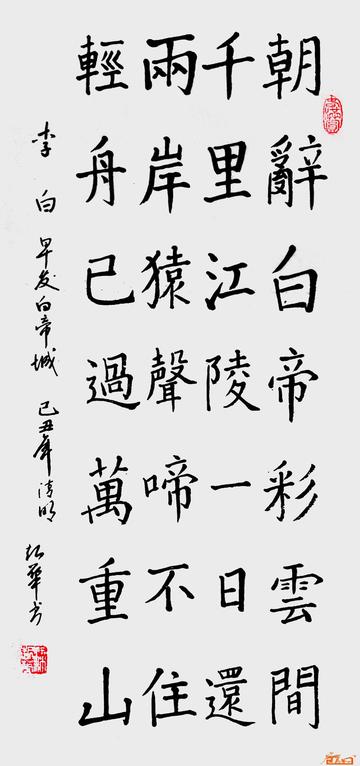 朝辭白帝彩雲間
千里江陵一日還
兩岸猿聲啼不住
輕舟已過萬重山
李白 早发白帝城 己丑年清明